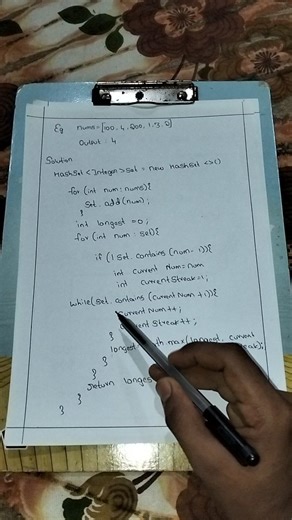 Eg nums=[100, 4, 200, 1, 3, 2]
Output: 4
Solution
HashSet <Integer> Set = new HashSet <>()
for (int num: nums){
Set. add(num);
}
int longest =0;
for (int num : set){
if (! Set. contains (num-1)){
int current Num=num
int current Streak=1;
while(Set. contains (currentNum +1)){
currentNum++;
current Streak++;
}
longest math.max(longest, current
Streak);
}
}
return longes
}
}